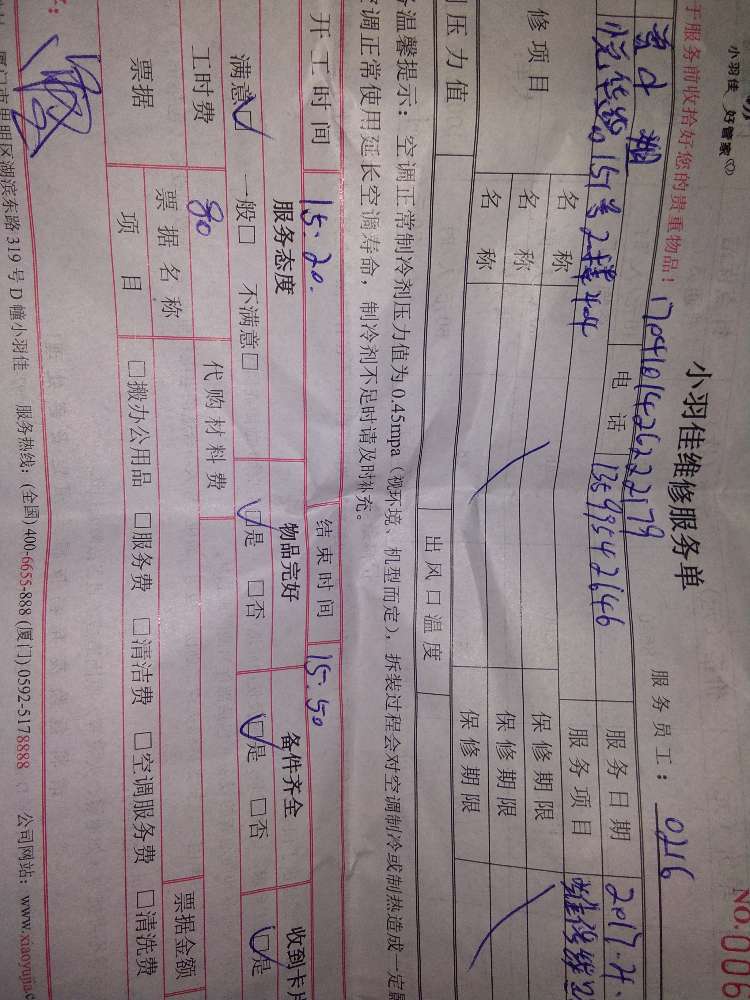 小羽佳 好管家
NO.006
小羽佳维修服务单
服务员工：0716
于服务前收拾好您的贵重物品！
1704101426222179
电话 13595542646 服务日期 2017.4.
151号2楼 服务项目
修项目 名称 保修期限
名称 保修期限
名称 保修期限
压力值 出风口温度
温馨提示：空调正常制冷剂压力值为0.45mpa（视环境、机型而定），拆装过程会对空调制冷或制热造成一定
空调正常使用延长空调寿命，制冷剂不足时请及时补充。
开工时间 15.20. 结束时间 15.50
服务态度 物品完好 备件齐全 收到卡片
满意☑ 一般□ 不满意□ ☑是 □否 ☑是 □否 ☑是
工时费 80 代购材料费
票据 票据名称 票据金额
项目 □搬办公用品 □服务费 □清洁费 □空调服务费 □清洗费
厦门市思明区湖滨东路319号D幢小羽佳 服务热线：(全国)400-6655-888 (厦门)0592-5178888 公司网站：www.xiaoyujia.c